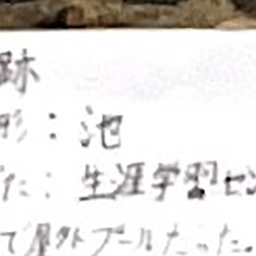 跡
形：池
た：生涯学習セン
て屋外プールだった。